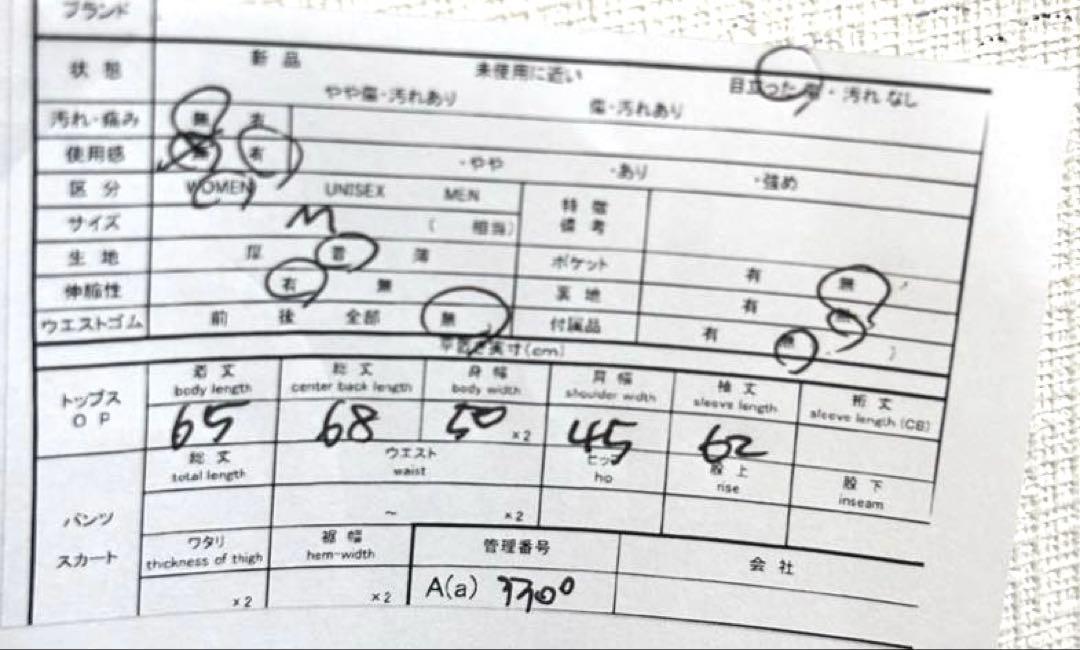 ブランド
状態 新品 未使用に近い 目立った傷・汚れなし
やや傷・汚れあり 傷・汚れあり
汚れ・痛み 無 有
使用感 無 有 ・やや ・あり ・強め
区分 WOMEN UNISEX MEN 特徴 備考
サイズ M ( 相当)
生地 厚 普 薄 ポケット 有 無
伸縮性 有 無 裏地 有 無
ウエストゴム 前 後 全部 無 付属品 有 無 )
平置き実寸(cm)
トップス OP 着丈 総丈 身幅 肩幅 袖丈 裄丈
body length center back length body width shoulder width sleeve length sleeve length (CB)
65 68 50 ×2 45 62
パンツ スカート 総丈 ウエスト ヒップ 股上 股下
total length waist rise inseam
~ ×2
ワタリ 裾幅 管理番号 会社
thickness of thigh hem-width
×2 ×2 A(a)